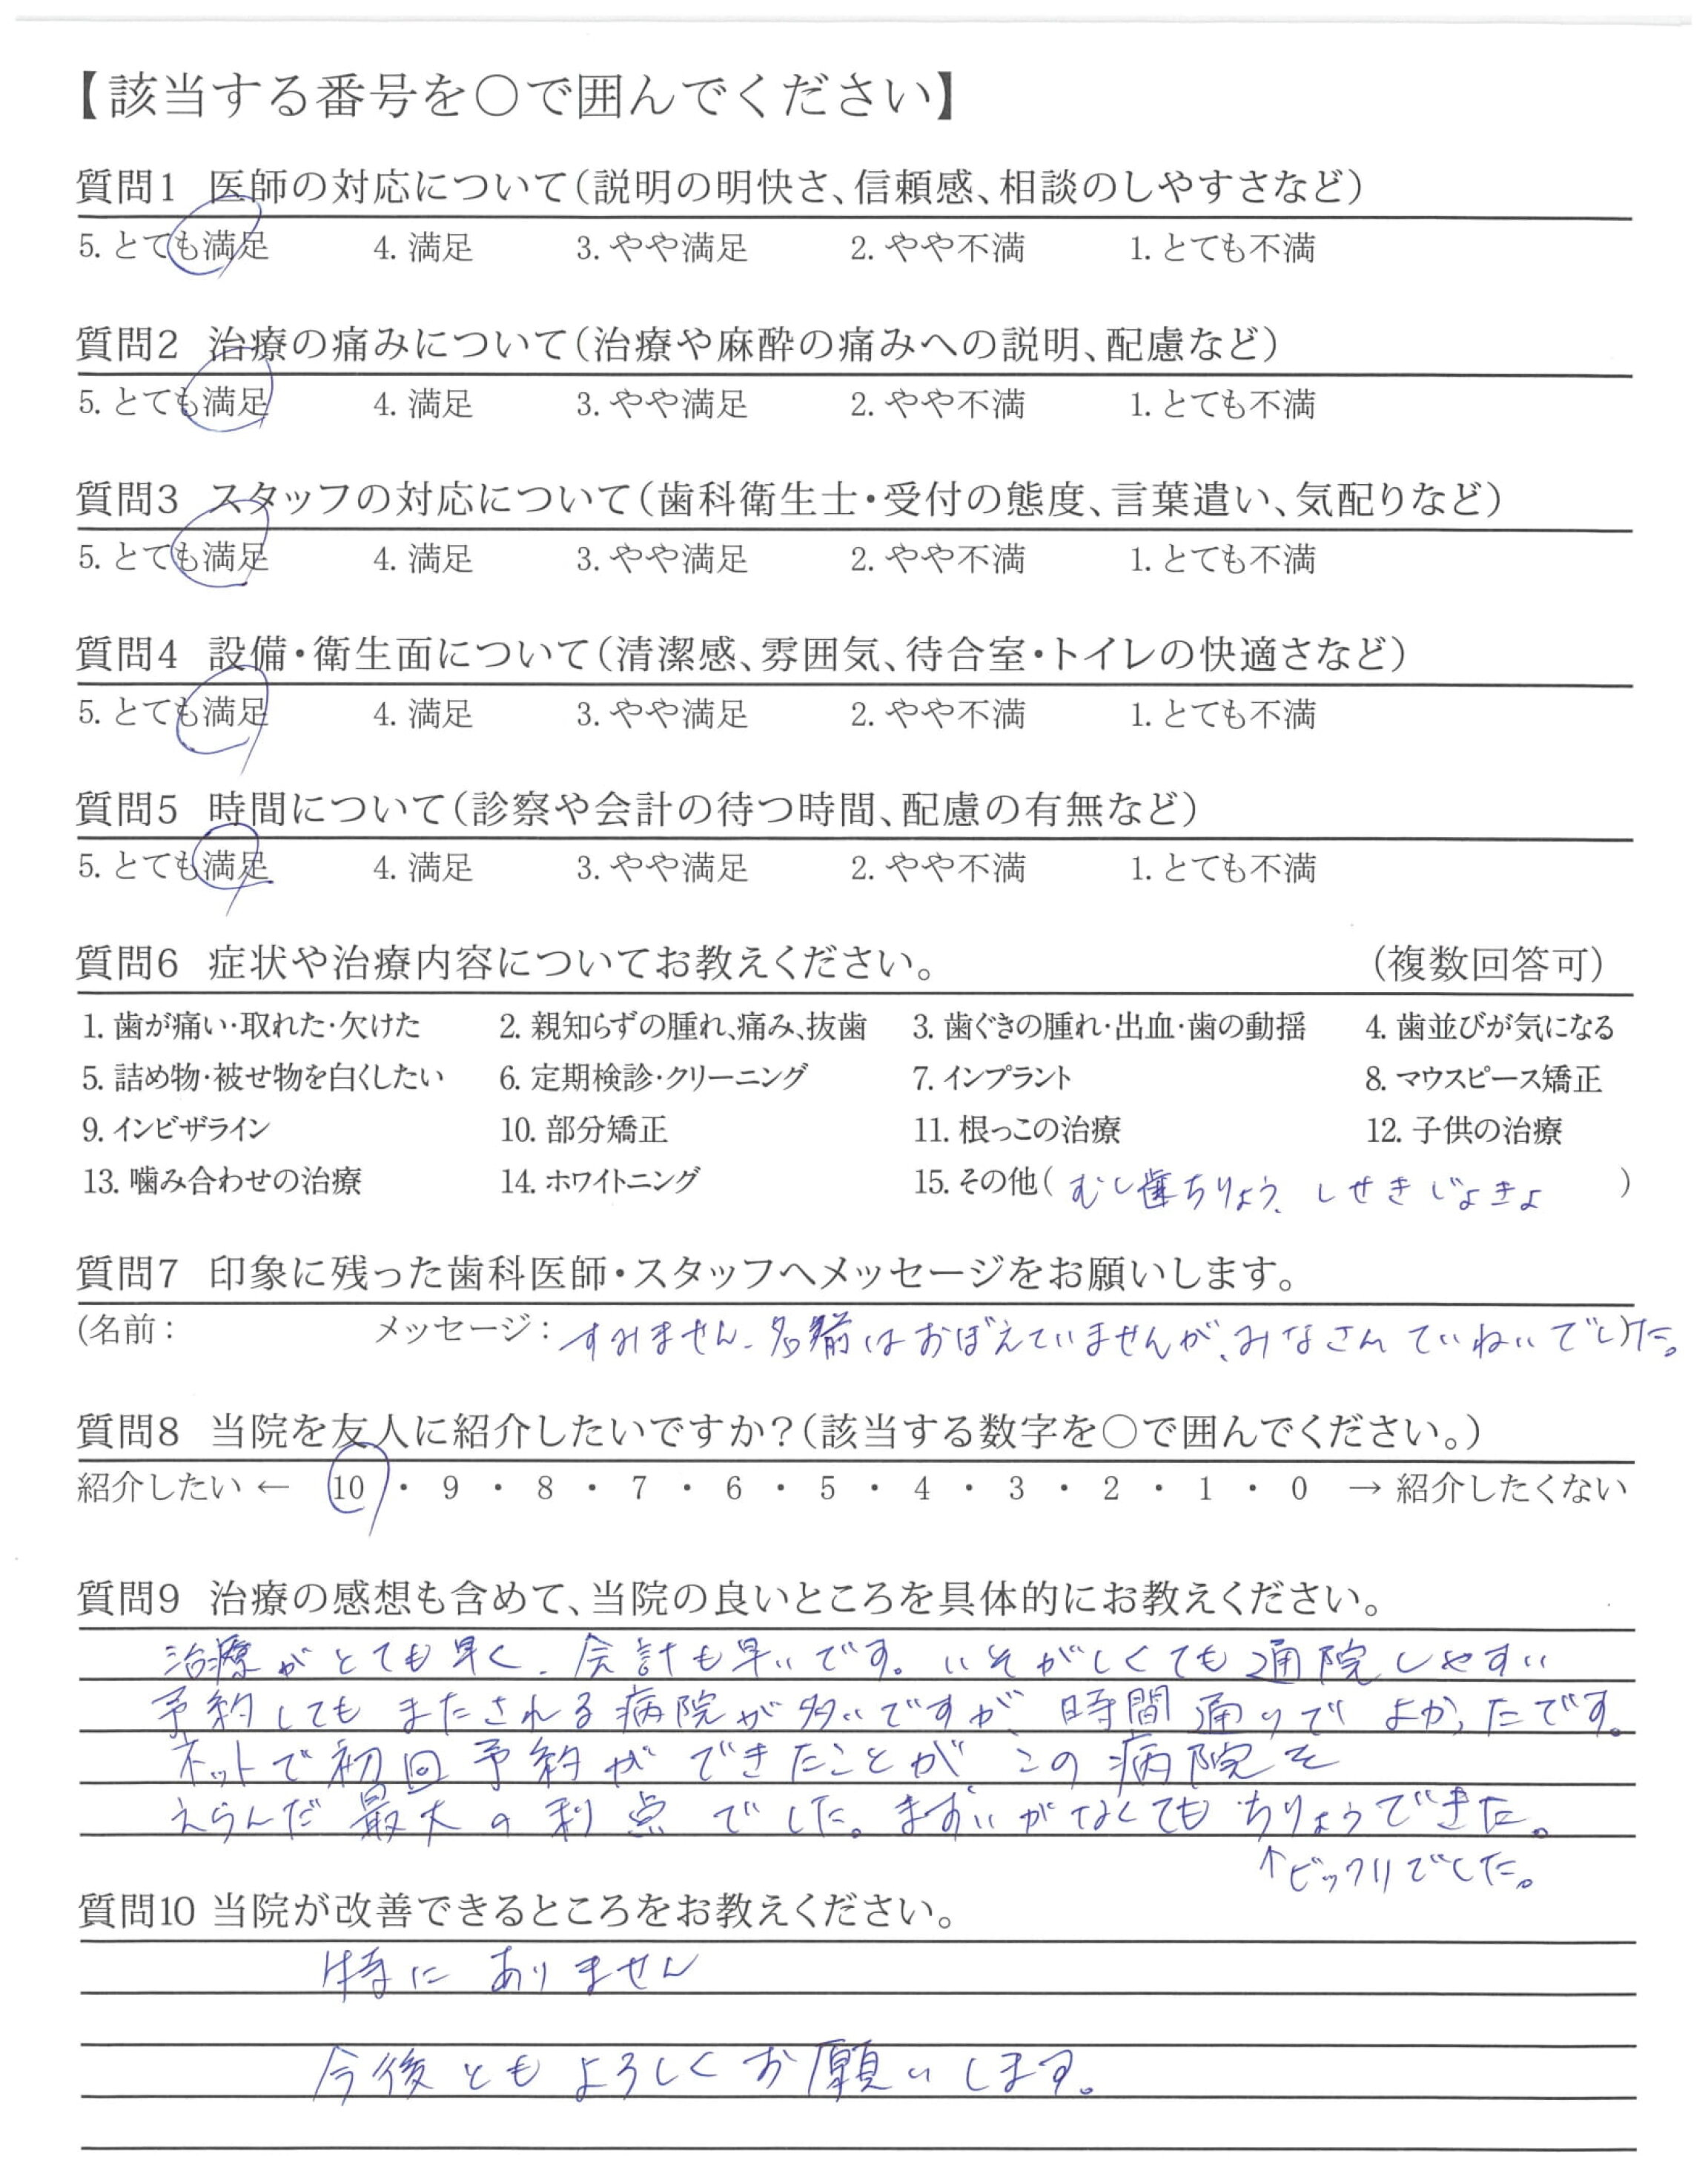 【該当する番号を○で囲んでください】
質問1 医師の対応について（説明の明快さ、信頼感、相談のしやすさなど）
5. とても満足 4. 満足 3. やや満足 2. やや不満 1. とても不満
質問2 治療の痛みについて（治療や麻酔の痛みへの説明、配慮など）
5. とても満足 4. 満足 3. やや満足 2. やや不満 1. とても不満
質問3 スタッフの対応について（歯科衛生士・受付の態度、言葉遣い、気配りなど）
5. とても満足 4. 満足 3. やや満足 2. やや不満 1. とても不満
質問4 設備・衛生面について（清潔感、雰囲気、待合室・トイレの快適さなど）
5. とても満足 4. 満足 3. やや満足 2. やや不満 1. とても不満
質問5 時間について（診察や会計の待つ時間、配慮の有無など）
5. とても満足 4. 満足 3. やや満足 2. やや不満 1. とても不満
質問6 症状や治療内容についてお教えください。 （複数回答可）
1. 歯が痛い・取れた・欠けた 2. 親知らずの腫れ、痛み、抜歯 3. 歯ぐきの腫れ・出血・歯の動揺 4. 歯並びが気になる
5. 詰め物・被せ物を白くしたい 6. 定期検診・クリーニング 7. インプラント 8. マウスピース矯正
9. インビザライン 10. 部分矯正 11. 根っこの治療 12. 子供の治療
13. 噛み合わせの治療 14. ホワイトニング 15. その他（むし歯ちりょう、しせきじょきょ）
質問7 印象に残った歯科医師・スタッフへメッセージをお願いします。
(名前： メッセージ：すみません、名前はおぼえていませんが、みなさんていねいでした。)
質問8 当院を友人に紹介したいですか？（該当する数字を○で囲んでください。）
紹介したい ← 10 ・ 9 ・ 8 ・ 7 ・ 6 ・ 5 ・ 4 ・ 3 ・ 2 ・ 1 ・ 0 → 紹介したくない
質問9 治療の感想も含めて、当院の良いところを具体的にお教えください。
治療がとても早く、会計も早いです。いそがしくても通院しやすい
予約してもまたされる病院が多いですが、時間通りでよかったです。
ネットで初回予約ができたことが、この病院を
えらんだ最大の利点でした。ますいがなくてもちりょうできた。
↑ビックリでした。
質問10 当院が改善できるところをお教えください。
特にありません
今後ともよろしくお願いします。